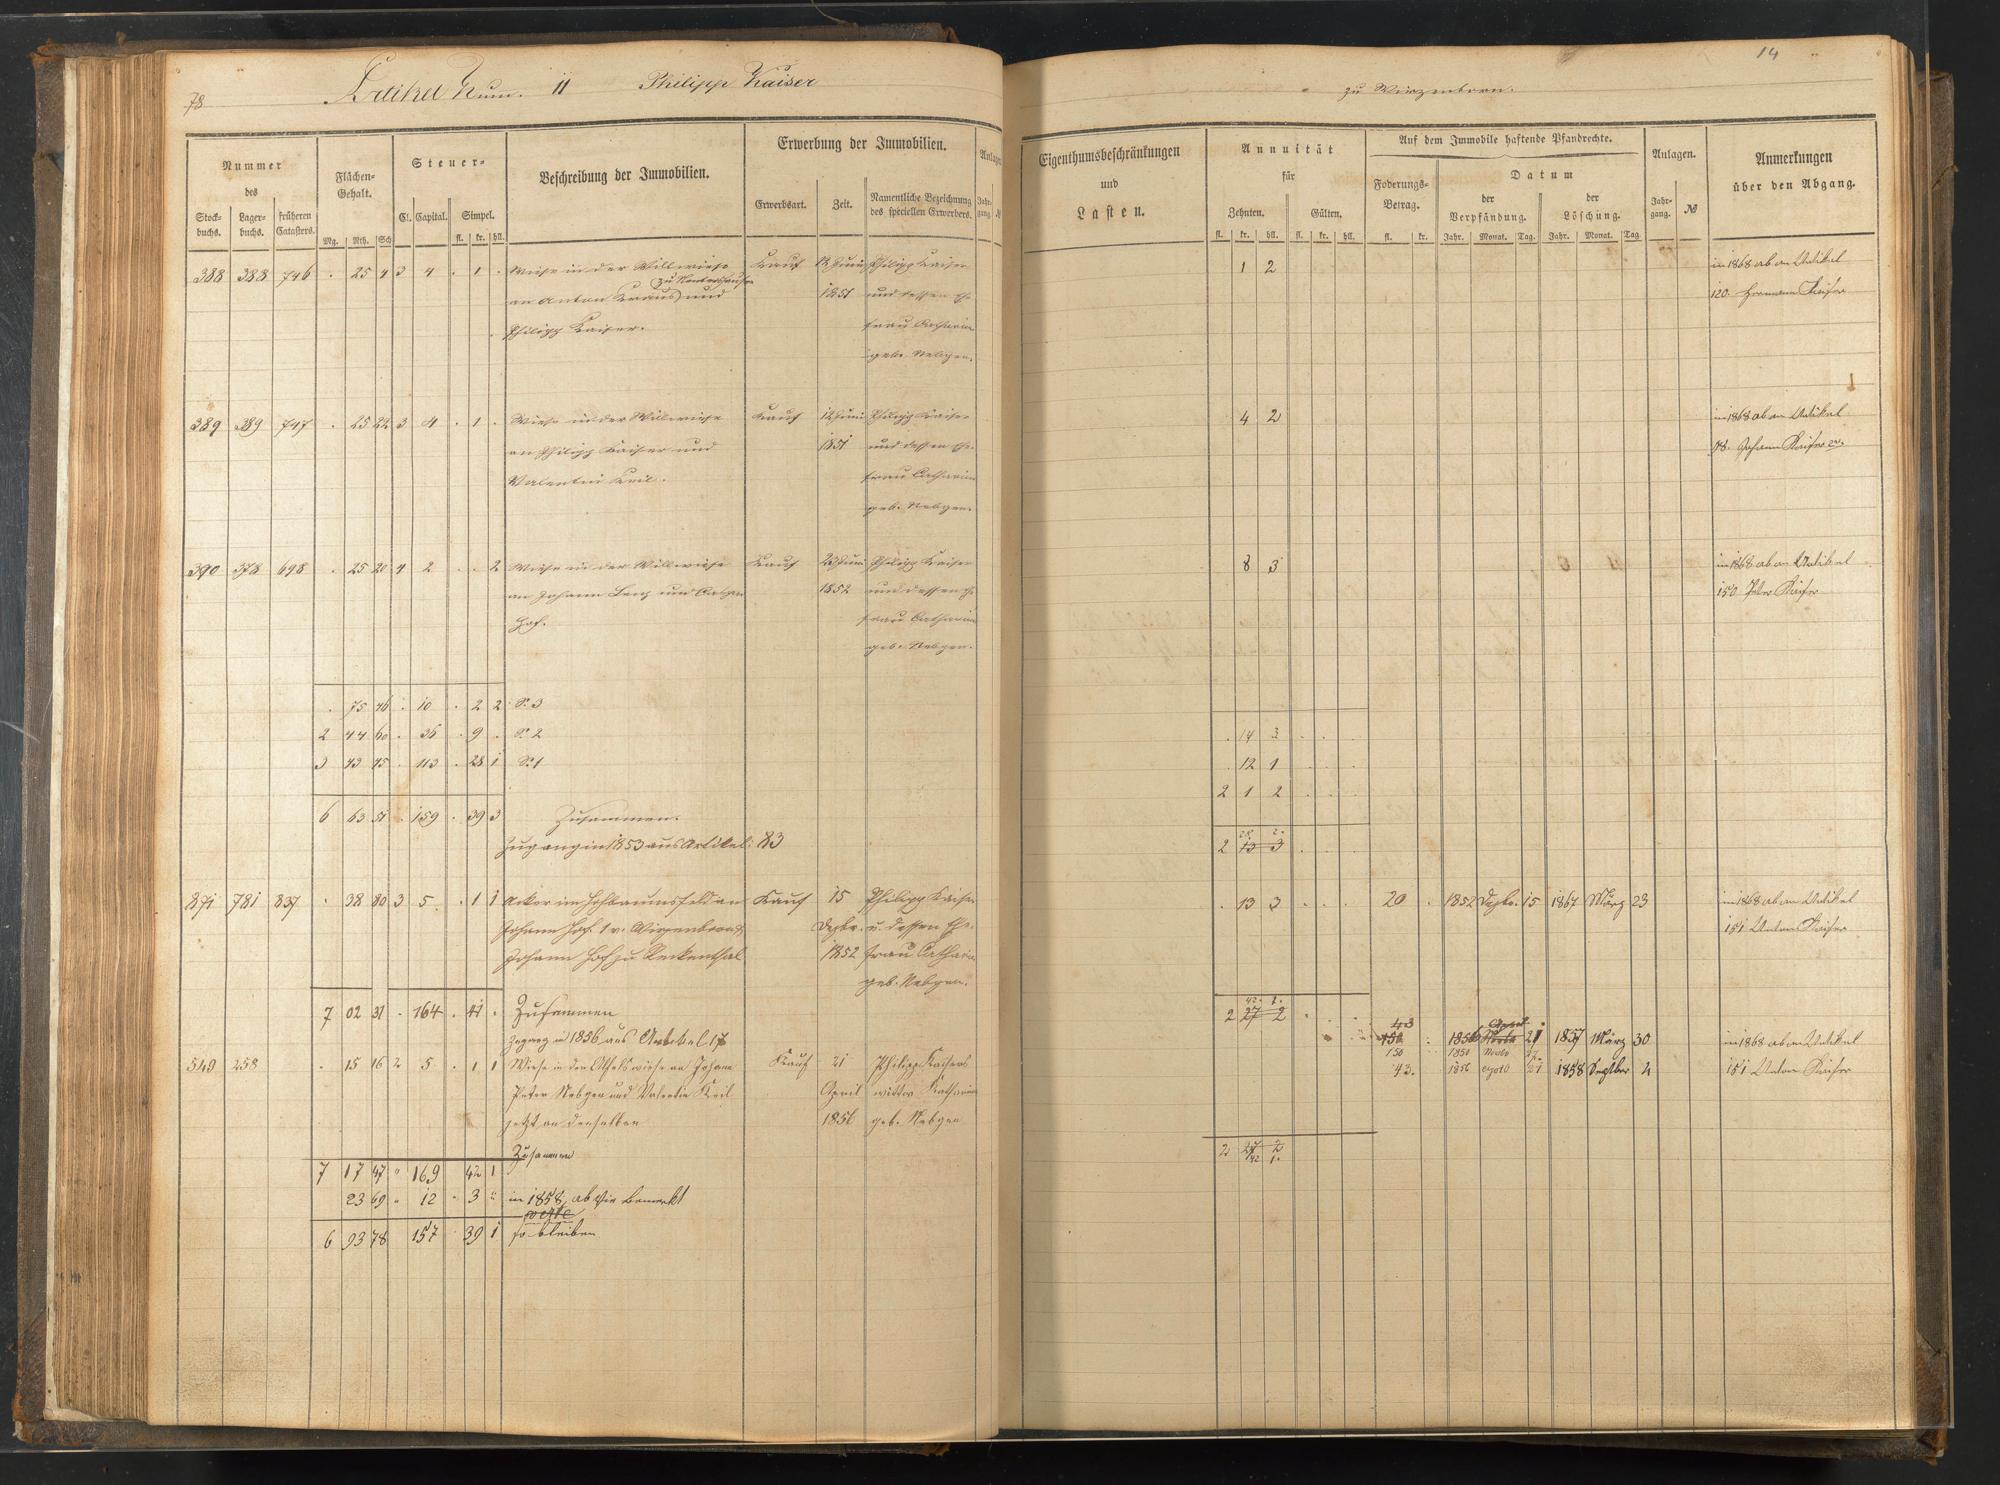 78
Artikel Num. 11 Philipp Kaiser
Nummer
des
Stock-
buchs.
Lager-
buchs.
früheren
Catasters.
Flächen-
Gehalt.
Mg. Rth. Sch
Steuer-
Cl. Capital. Simpel.
fl. kr. hll.
Beschreibung der Immobilien.
Erwerbung der Immobilien.
Erwerbsart. Zeit.
Namentliche Bezeichnung
des speciellen Erwerbers.
Anlagen
Jahr-
gang.
388 388 746 . 25 4 3 4 . 1 . Wiese in der Willwiese Kauf 12 Juni Philipp Kaiser
an Anton Kraus und 1851 und dessen Ehe-
Philipp Kaiser. frau Catharina
geb. Nebgen.
389 389 747 . 25 22 3 4 . 1 . Wiese in der Willwiese Kauf 12 Juni Philipp Kaiser
an Philipp Kaiser und 1851 und dessen Ehe-
Valentin Keil. frau Catharina
geb. Nebgen.
390 378 698 . 25 20 4 2 . . 2 Wiese in der Willwiese Kauf 23 Juni Philipp Kaiser
an Johann Lenz und 1852 und dessen Ehe-
Hof. frau Catharina
geb. Nebgen.
. 75 46 . 10 . 2 2 S. 3
2 44 60 . 36 . 9 . S. 2
3 43 45 . 113 . 28 1 S. 1
6 63 51 . 159 . 39 3 Zusammen.
Zugang in 1853 aus Artikel: 83
871 781 837 . 38 80 3 5 . 1 1 Acker im Hohbaumsfeld an Kauf 15 Philipp Kaiser
Johann Hof 1r v. Wirzenborn & Dezbr. u. dessen Ehe-
Johann Hof zu Reckenthal 1852 frau Catharina
geb. Nebgen.
7 02 31 . 164 . 41 . Zusammen
Zugang in 1856 aus Artikel 176
549 258 . 15 16 2 5 . 1 1 Wiese in der wiese an Johann Kauf 21 Philipp Kaisers
Peter Nebgen und Valentin Keil April wittw Katharina
jetzt an denselben 1856 geb. Nebgen
Zusammen
7 17 47 " 169 . 42 1
23 69 " 12 . 3 " in 1858 ab wie bemerkt
6 93 78 157 . 39 1 so bleiben
14
zu Wirzenborn.
Eigenthumsbeschränkungen
und
Lasten.
Annuität
für
Zehnten. Gülten.
fl. kr. hll. fl. kr. hll.
Auf dem Immobile haftende Pfandrechte.
Foderungs-
Betrag.
fl. kr.
Datum
der
Verpfändung.
der
Löschung.
Jahr. Monat. Tag. Jahr. Monat. Tag
Anlagen.
Jahr-
gang. №
Anmerkungen
über den Abgang.
1 2 in 1868 ab an Artikel
120. Hermann Kaiser
4 2 in 1868 ab an Artikel
98. Johann Kaiser 2r.
8 3 in 1868 ab an Artikel
150 Peter Kaiser
. 14 3 . . .
. 12 1 . . .
2 1 2 . . .
28 2.
2 13 3 . . .
. 13 3 . . . 20 . 1852 Dezbr. 15 1867 März 23 in 1868 ab an Artikel
151 Anton Kaiser
42. 1.
2 27 2
1856 21 1857 März 30 in 1868 ab an Artikel
150 1850
43. 1856 21 1858 Septber 4 151 Anton Kaiser
2 27 2
42 1.